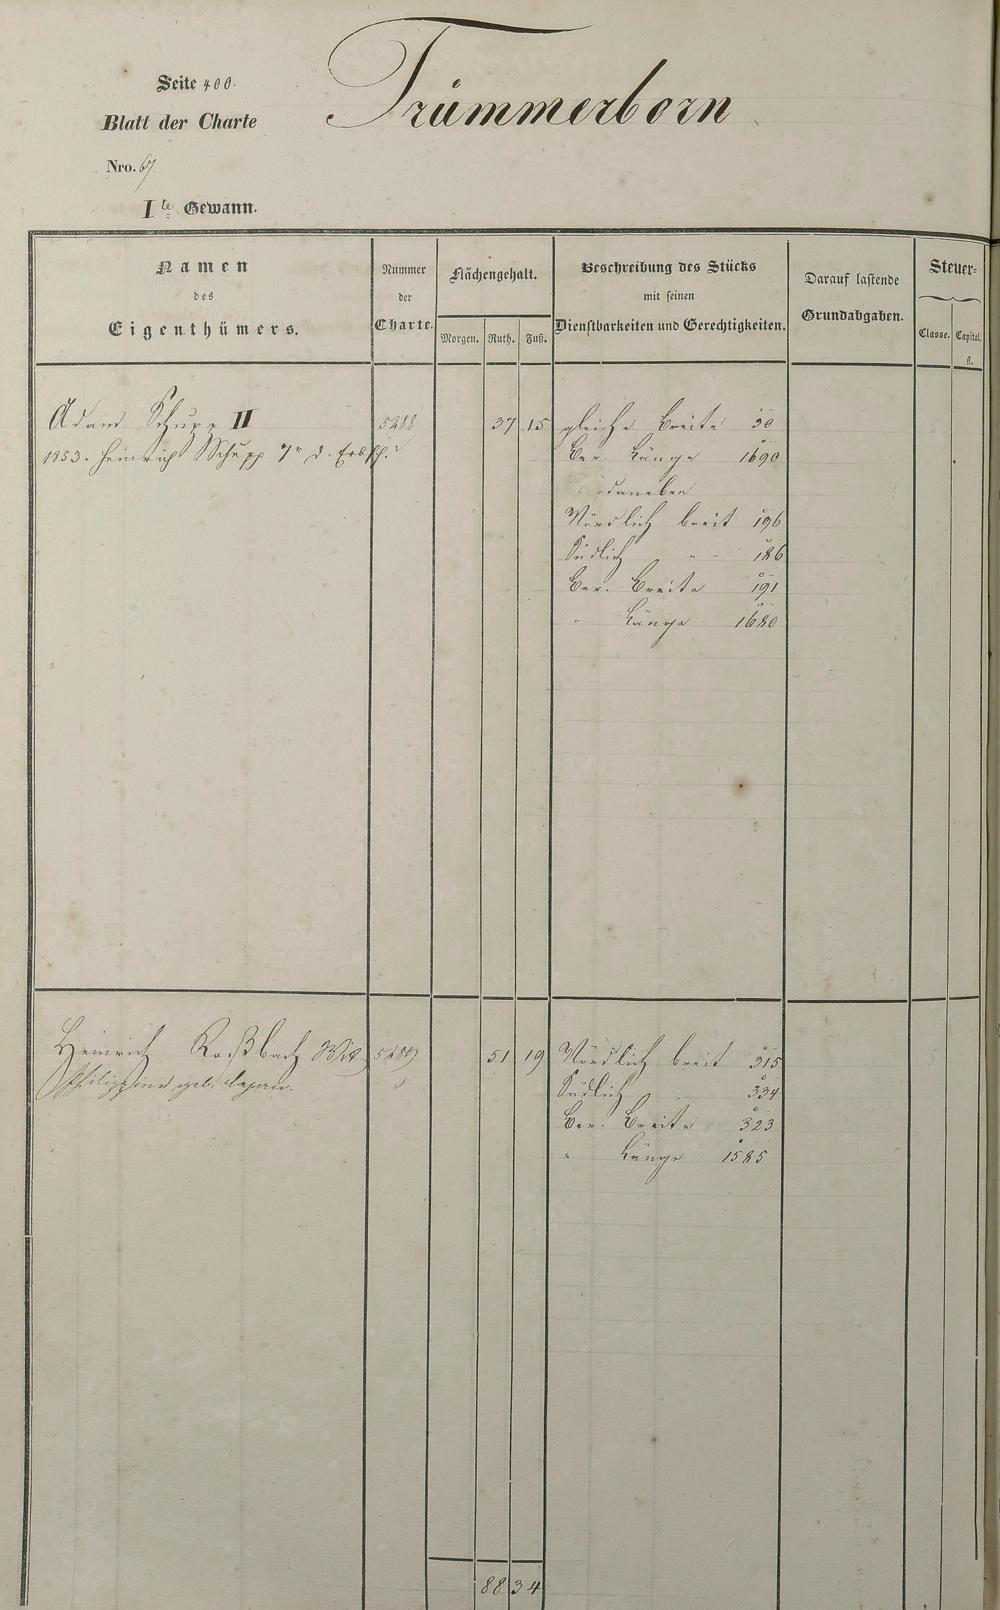 Seite 400.
Trümmerborn
Blatt der Charte
Nro. 67.
I te Gewann.
Namen
des
Eigenthümers.
Nummer
der
Charte.
Flächengehalt.
Morgen. Ruth. Fuß.
Beschreibung des Stücks
mit seinen
Dienstbarkeiten und Gerechtigkeiten.
Darauf lastende
Grundabgaben.
Steuer=
Classe. Capital.
fl.
Adam Schupp II 5288 37 15 gleiche Breite 30
1853. Heinrich Schupp 7r d. Erbsch. Ber. Länge 1690
daneben
Nördlich breit 196
Südlich " - 186
Ber. Breite 191
" Länge 1680
Heinrich Roßbach Wit 5289 51 19 Nördlich breit 315
Philippine geb. Südlich 334
Ber. Breite 323
" Länge 1585
88 34